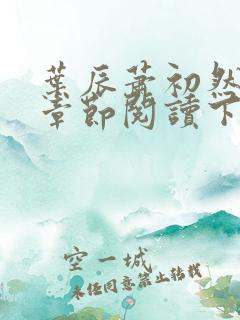 葉辰蕭初然
章節閱讀下
空一城
未经同意禁止转载